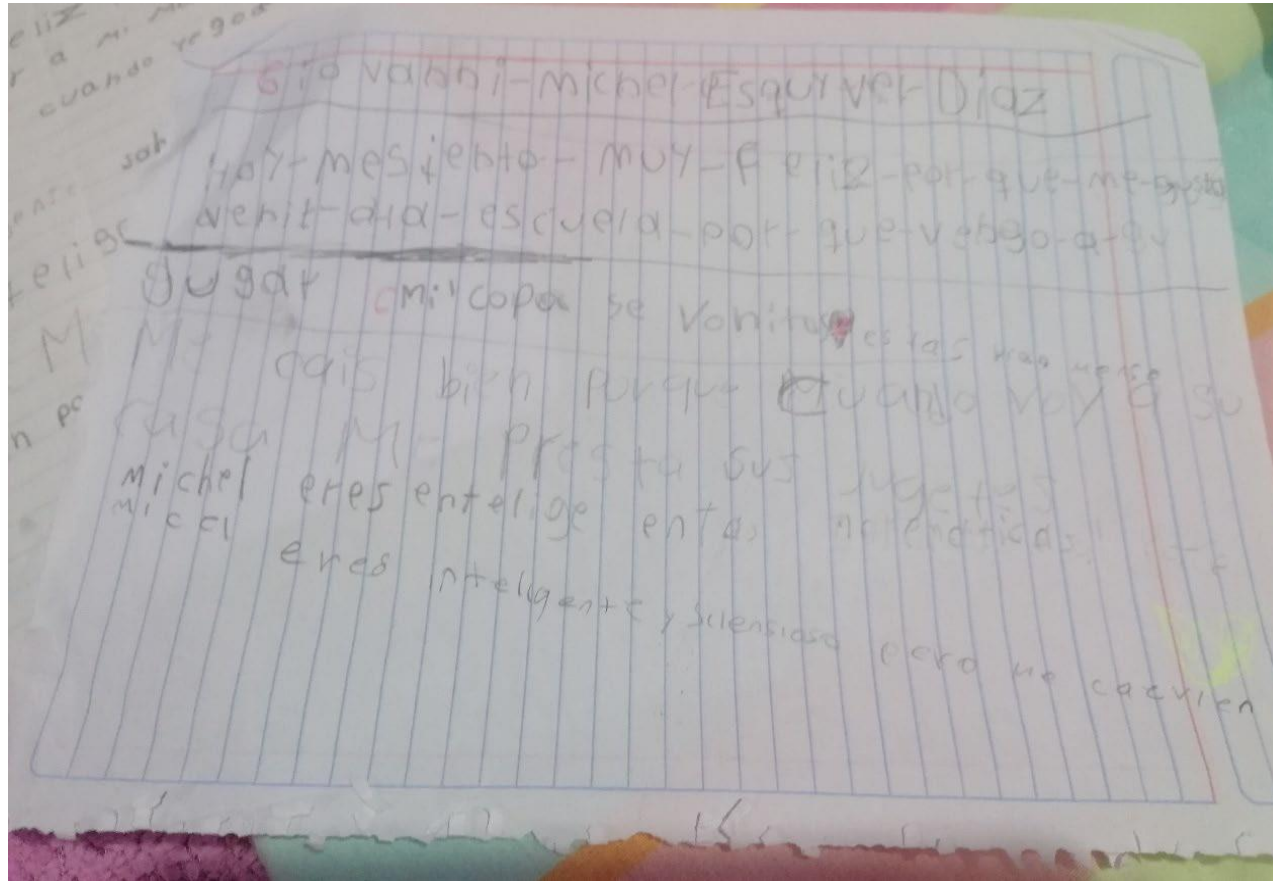 eliz
r a mi
cuando
Giovanni-michel-Esquivel-Diaz
sab
Hoy-mesiento-muy-feliz-por-que-me-gusta
venir-ala-escuela-por-que-vengo-a-qu
telige
gugar
mi copa se vonito
M
Me cais bien porque cuando voy a su
n po
casa Me presta sus jugetes
Michel eres entelige entas matematicas
eres inteligente y silensioso pero me caevien